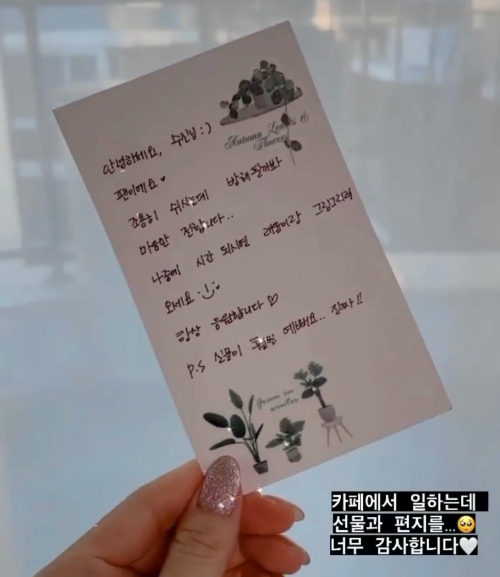 Autumn Leaves &
Flowers
안녕하세요, 수진님 :)
팬이에요 ♥
조용히 쉬시는데 방해될까봐
마음만 전합니다..
나중에 시간 되시면 애들이랑 그림그리러
오세요 :)
항상 응원합니다 ♡
p.s 실물이 훨씬 예뻐요.. 진짜!!
Green in
winter
카페에서 일하는데
선물과 편지를...🥺
너무 감사합니다🤍